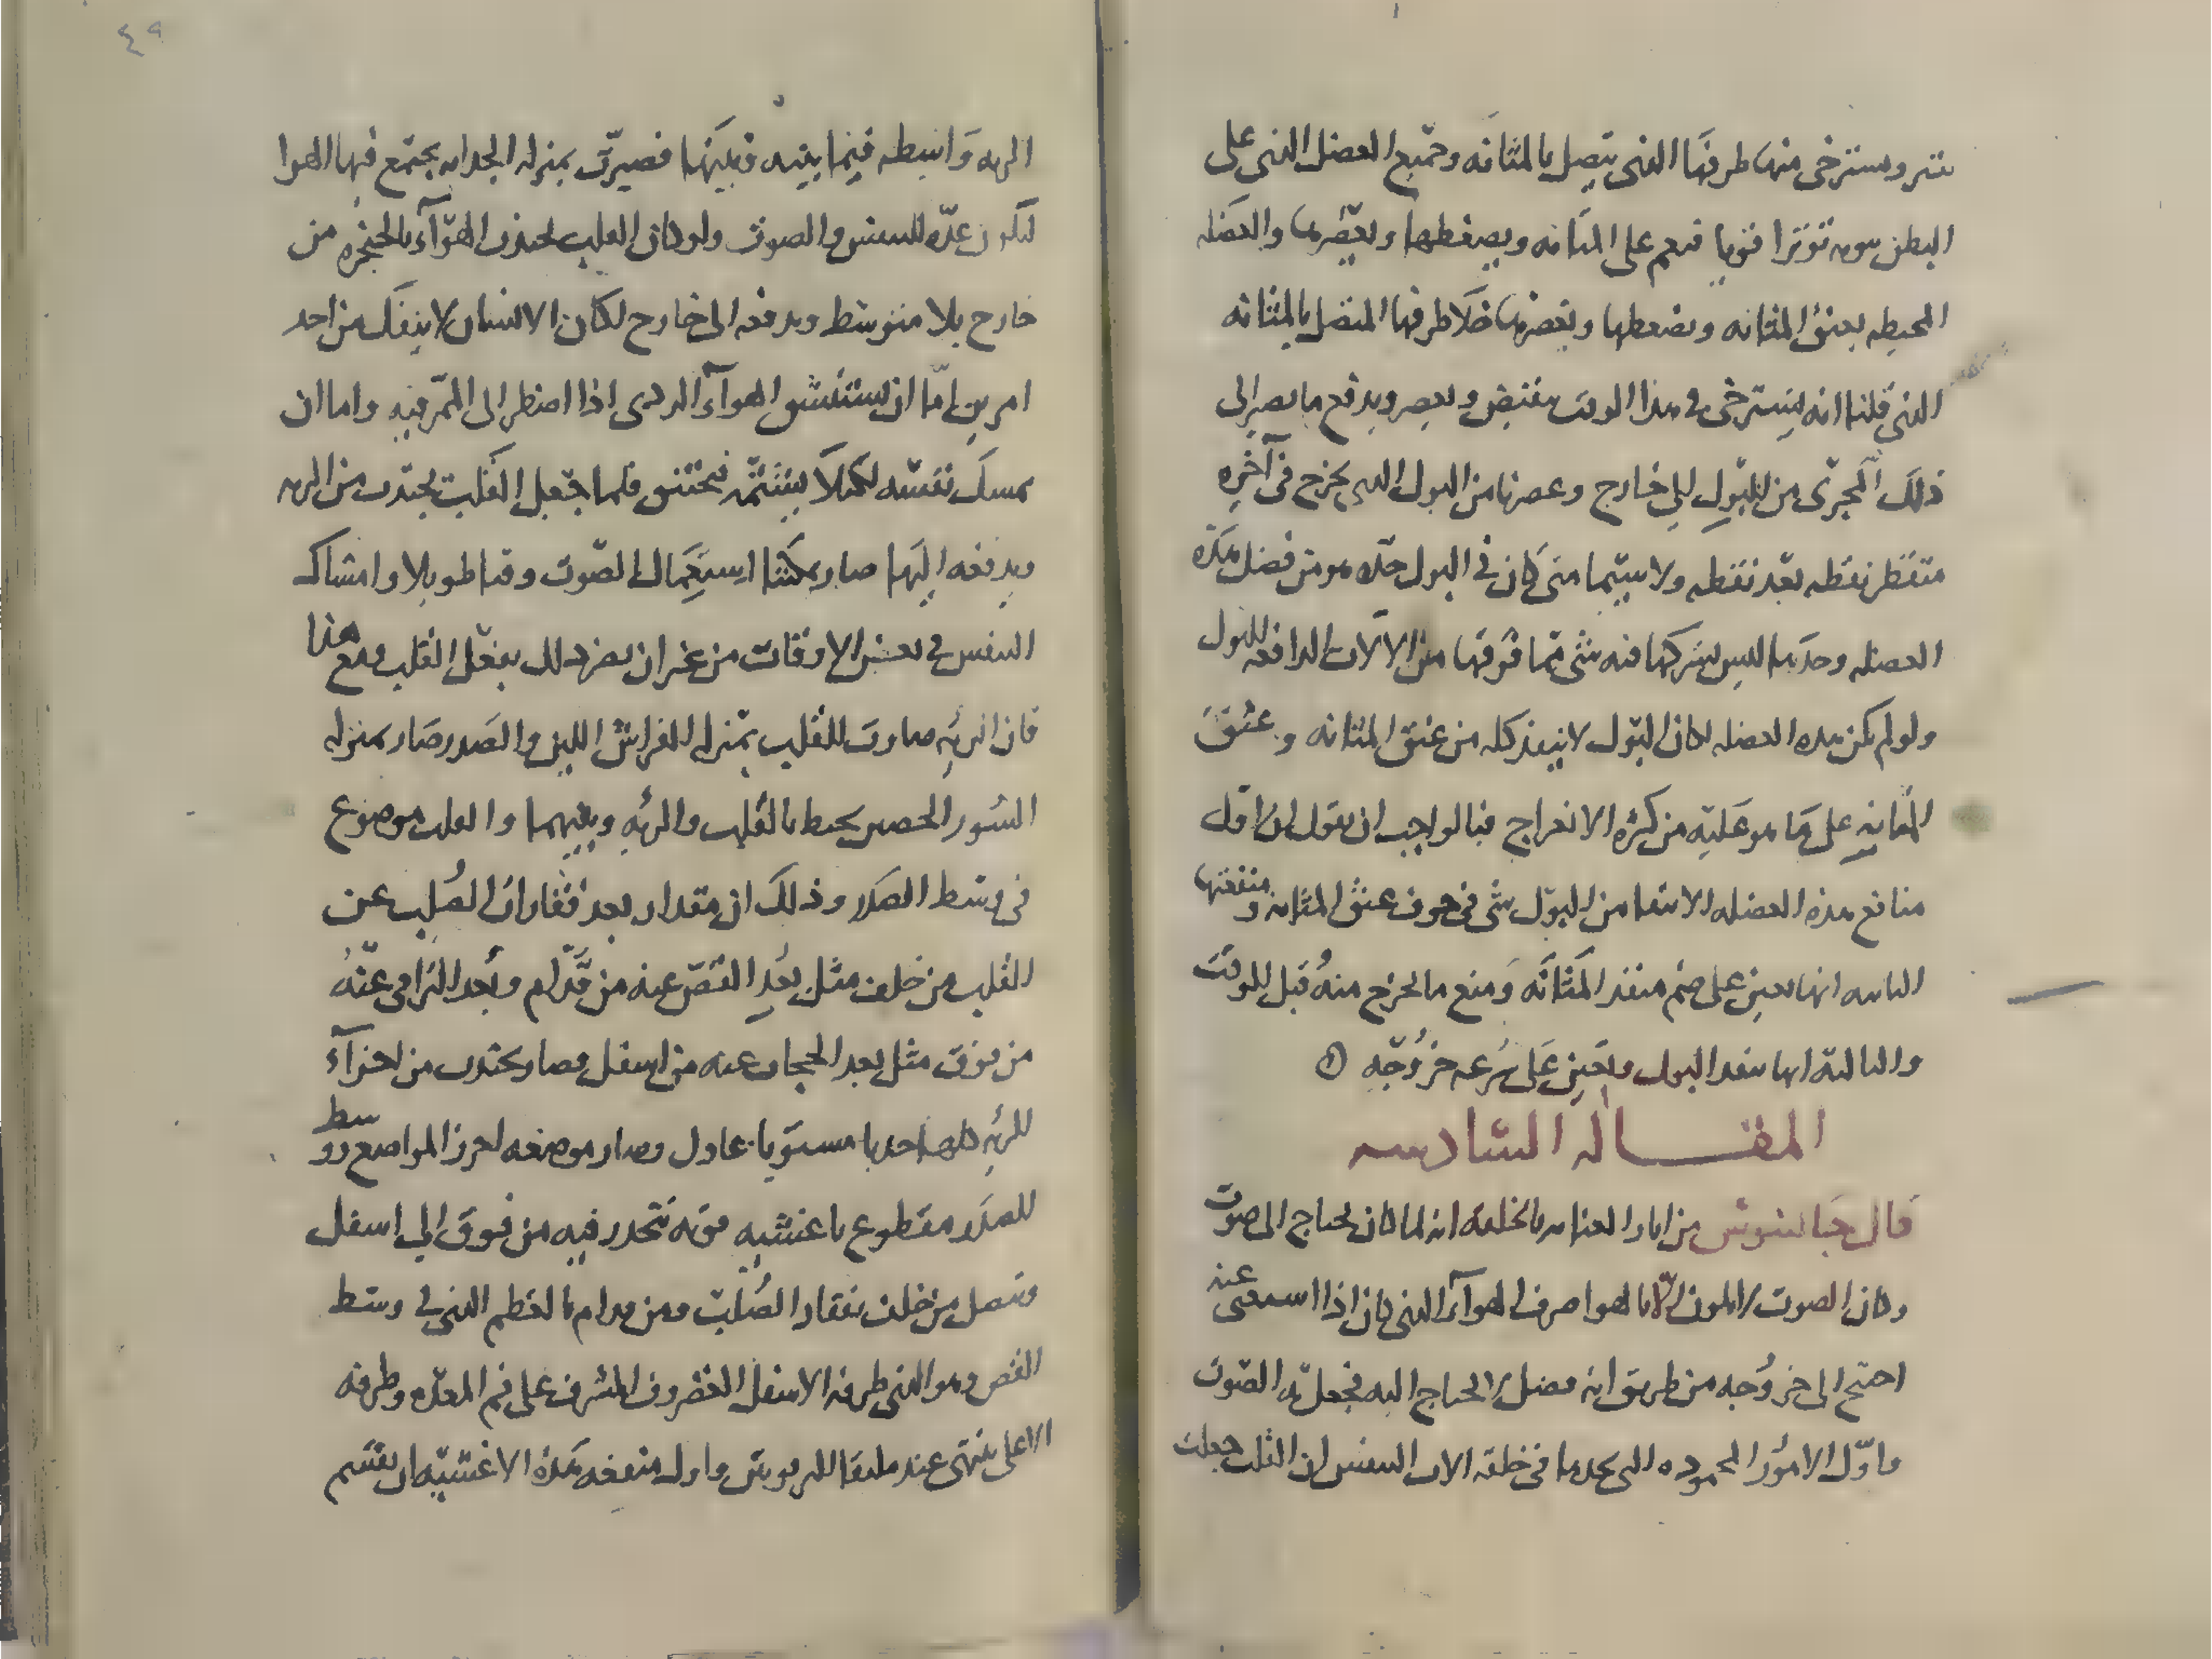 ويسترخى منها طرفها الذى يتصل بالمثانه وجميع العضل الذى على
البطن توترا قويا على المثانه ويضغطها ويعصرها والعضله
المحيطه بعنق المثانه وتضغطها وتعصرها خلا طرفها المتصل بالمثانه
الذى قلنا انه يسترخى فى هذا الوقت ويعصر ويدفع ما يصير الى
ذلك المجرى من البول الى خارج وعصرها من البول الذى يخرج فى آخره
نقطه بعد نقطه ولا سيما متى كان فى البول حده هو من فضل هذه
العضله وحدها ليس يشركها فيه شى مما فوقها من الالات الدافعه للبول
ولو لم تكن هذه العضله لكان البول لا ينفذ كله من عنق المثانه وعنق
المثانه على ما هو عليه من كثره الانعراج فبالواجب ان نقول ان اول
منافع هذه العضله الا يبقا من البول شى فى جوف عنق المثانه ومنفعتها
الثانيه انها تعين على ضم منفذ المثانه ومنع ما يخرج منه قبل الوقت
والثالثه انها تنفذ البول وتعين على سرعه خروجه
المقاله السادسه
قال جالينوس من اثار العنايه بالخلقه انه لما كان يحتاج الى صوت
وكان الصوت لا يكون الا بالهوا صرف الهوآء الذى كان اذا استغنى عنه
احتيج الى خروجه من طريق انه فضل لا يحتاج اليه فجعل به الصوت
واول الامور المحموده التى نجدها فى خلقه الات التنفس ان القلب جعلت
الريه واسطه فيما بينه وبينها فصيرت بمنزله الخزانه يجتمع فيها الهوا
ليكون عده للتنفس والصوت ولو كان القلب يجتذب الهوآء بالحنجره من
خارج بلا متوسط ويدفعه الى خارج لكان الانسان لا ينفك من احد
امرين اما ان يستنشق الهوآء الردى اذا اضطر الى الممر فيه واما ان
يمسك نفسه لكيلا يشتمه فيختنق فلما جعل القلب يجتذب من الريه
ويدفعه اليها صار يمكننا استعمال الصوت وقتا طويلا وامساك
النفس فى بعض الاوقات من غير ان يضر ذلك بفعل القلب ومع هذا
فان الريه صارت للقلب بمنزله الفراش اللين والصدر صار بمنزله
السور الحصين يحيط بالقلب والريه ويقيهما والقلب موضوع
فى وسط الصدر وذلك ان مقدار بعد فقارات الصلب عن
القلب من خلف مثل بعد القص عنه من قدام وبعد التراقى عنه
من فوق مثل بعد الحجاب عنه من اسفل فصار يجتذب من اجزآء
الريه كلها جذبا مستويا عادل وصار موضعه احرز المواضع ووسط
الصدر مقطوع باغشيه قويه تنحدر فيه من فوق الى اسفل
وتتصل من خلف بفقار الصلب ومن قدام بالعظم الذى فى وسط
القص وهو الذى طرفه الاسفل الغضروف المشرف على فم المعده وطرفه
الاعلى ينتهى عند ملتقا الترقوتين واول منفعه هذه الاغشيه ان تقسم
٤٩